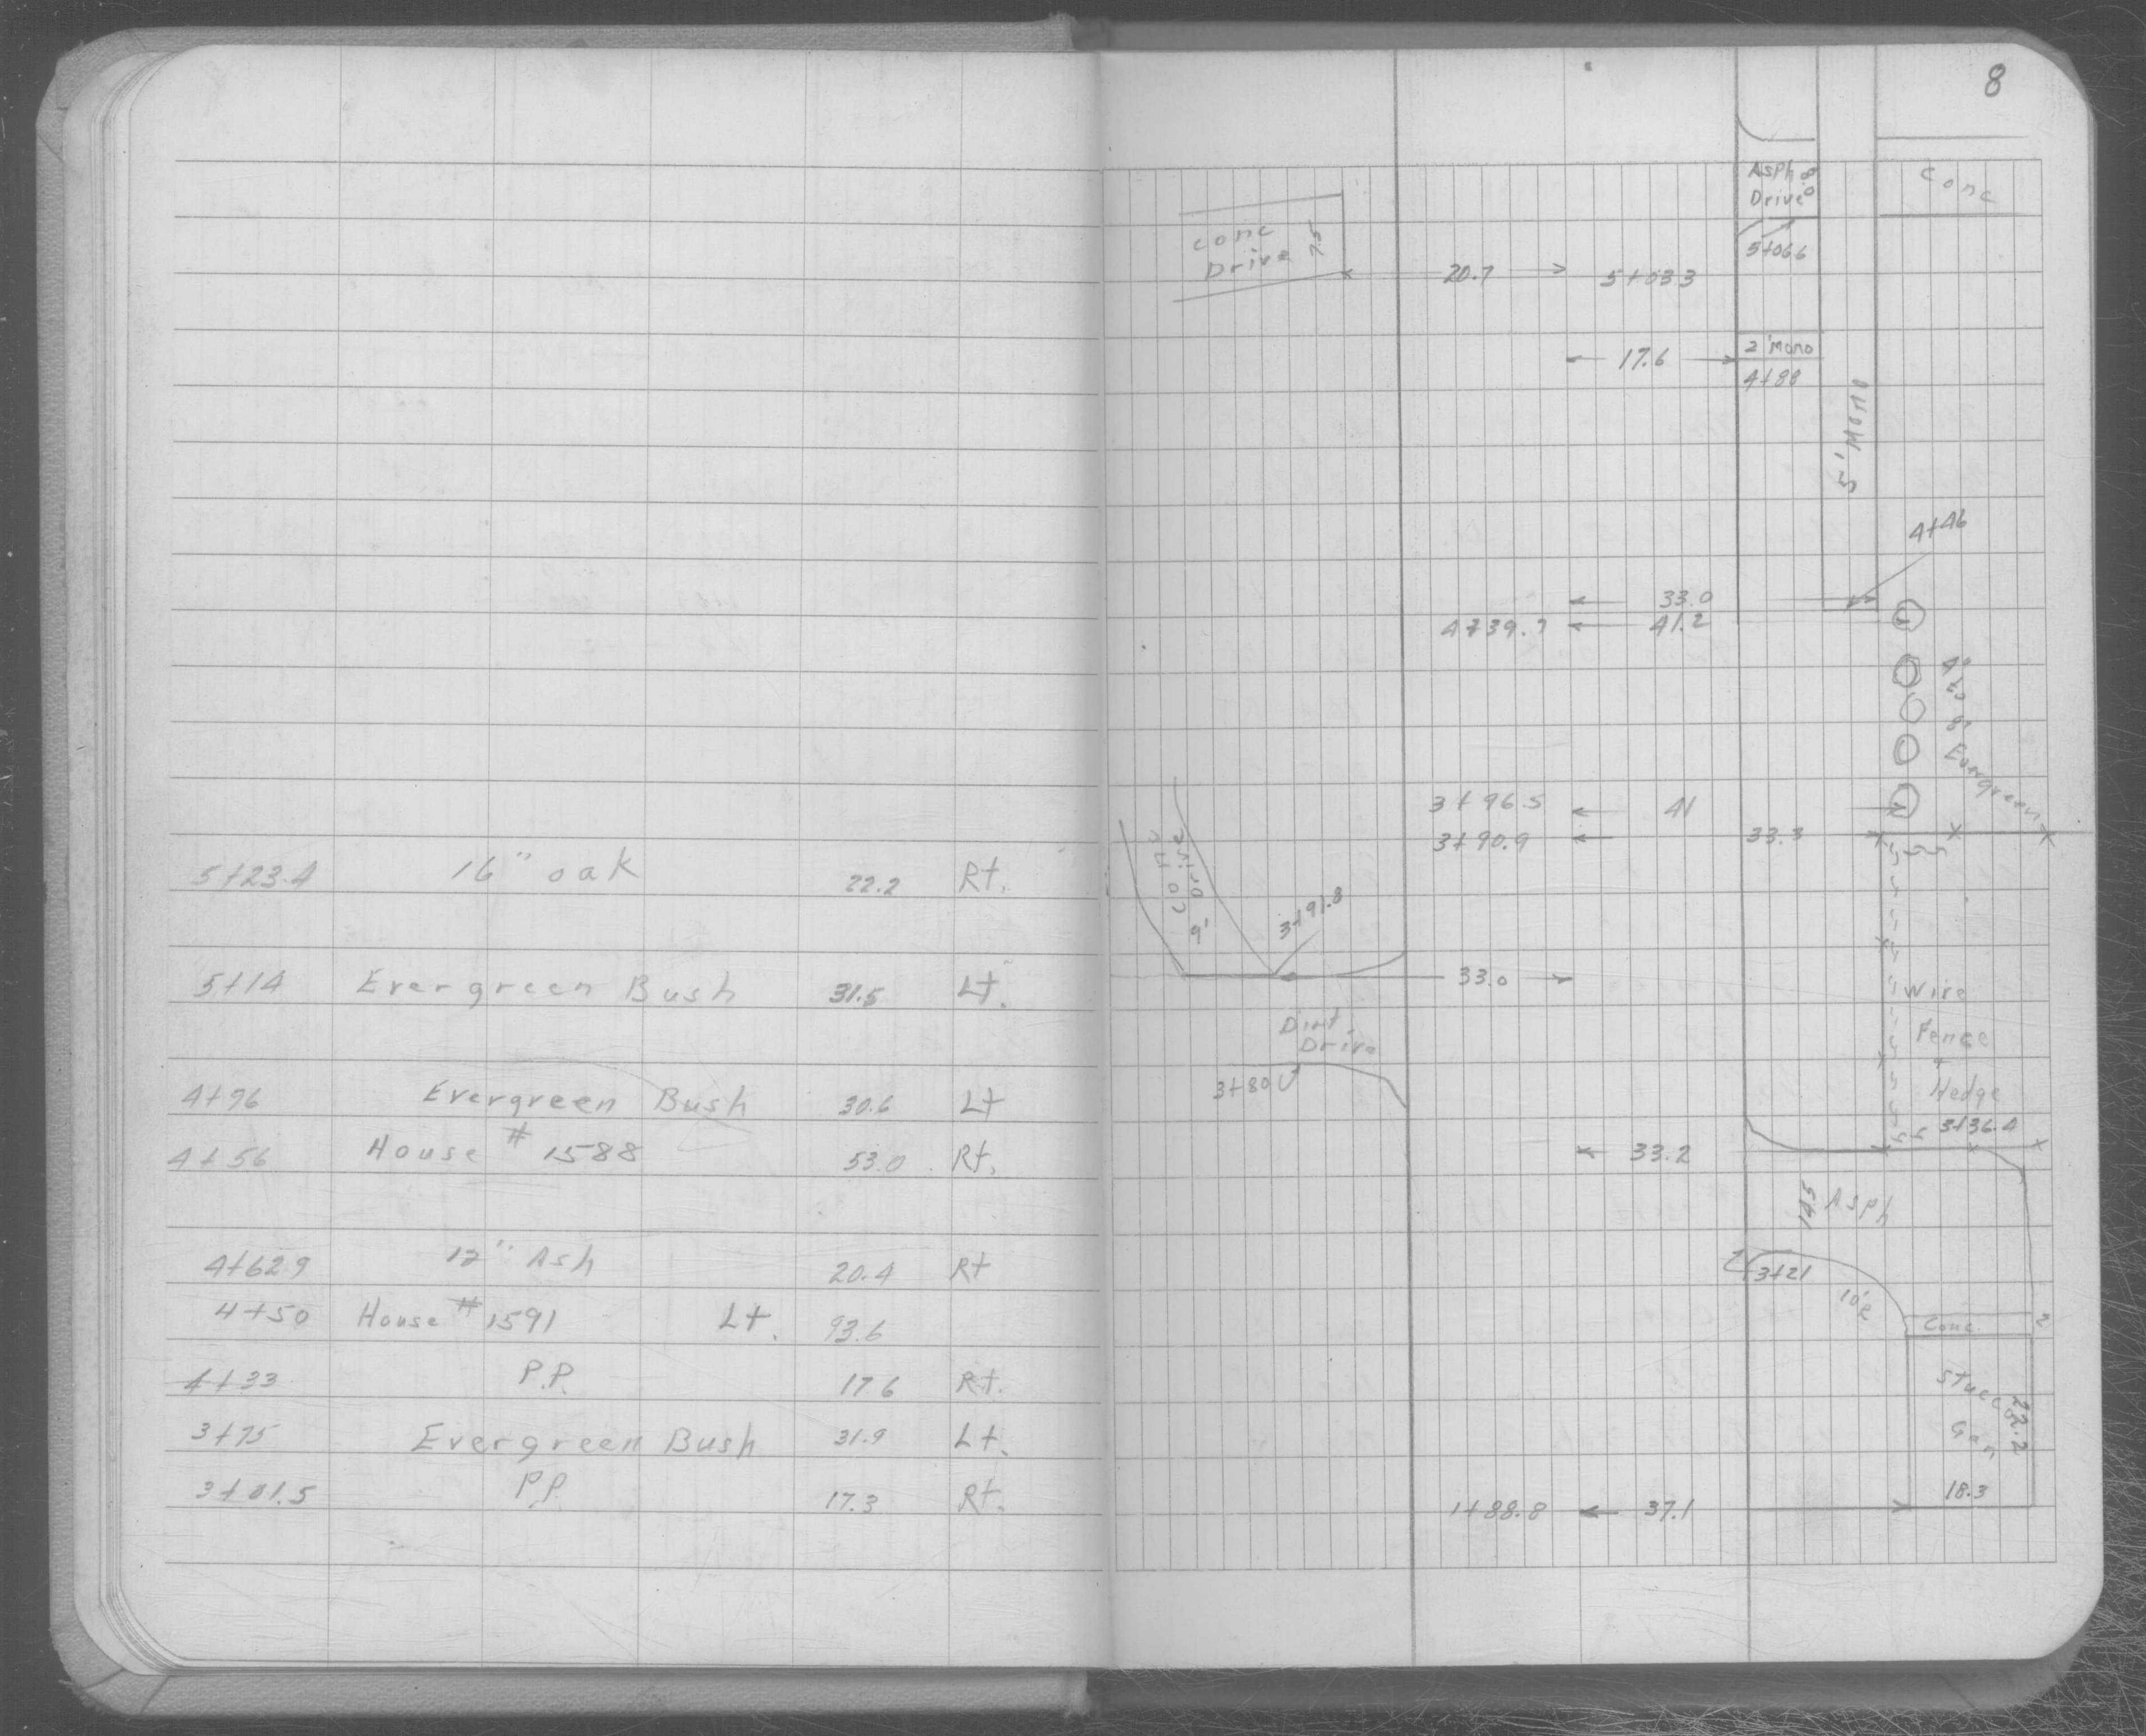 5+23.4 16" oak 22.2 Rt.
5+14 Evergreen Bush 31.5 Lt.
4+96 Evergreen Bush 30.6 Lt
4+56 House # 1588 53.0 Rt.
4+62.9 12" Ash 20.4 Rt
4+50 House # 1591 Lt. 93.6
4+33 P.P. 17.6 Rt.
3+75 Evergreen Bush 31.9 Lt.
3+01.5 P.P. 17.3 Rt.
8
Asph 8.0
Drive
Conc
Conc
Drive 7.5
5+06.6
20.7 5+03.3
17.6 2' Mono
4+88
5' Mono
4+46
33.0
4+39.7 41.2
4" to 8" Evergreen
3+96.5 41
3+90.9 33.3
9' Conc Drive
3+91.8
33.0
Wire
Fence
+
Hedge
Dirt
Drive
3+80
3+36.4
33.2
14.5 Asph
3+21
10'R
Conc. 2
Stucco
Gar
22.2
18.3
1+88.8 37.1